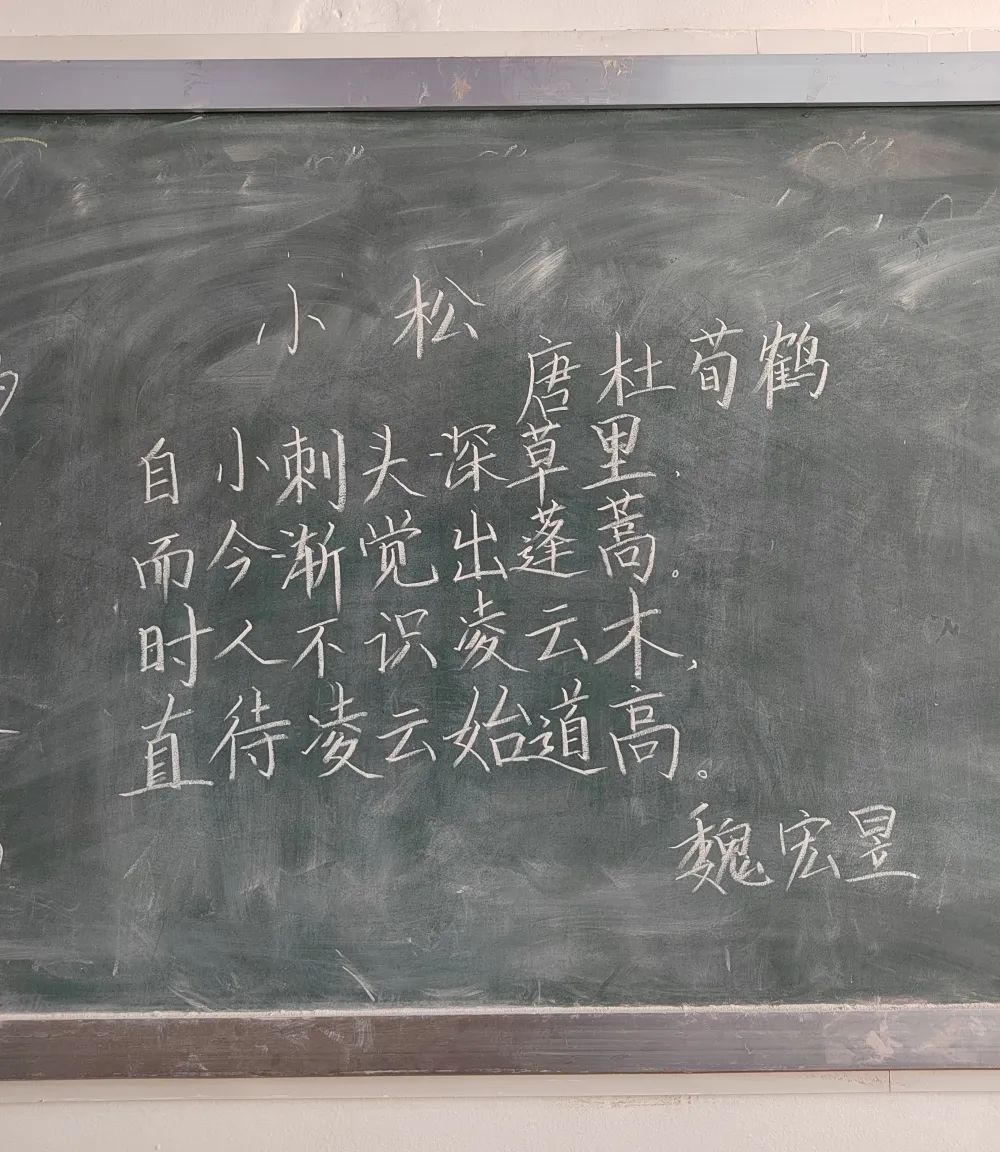 小松
唐杜荀鹤
自小刺头深草里,
而今渐觉出蓬蒿。
时人不识凌云木,
直待凌云始道高。
魏宏昱